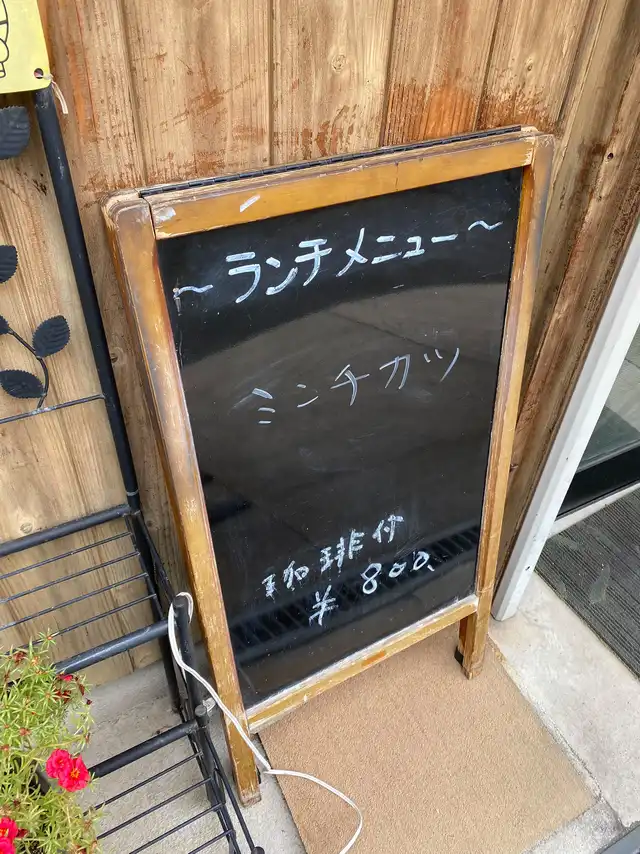 ~ランチメニュー~
ミンチカツ
珈琲付
¥800.